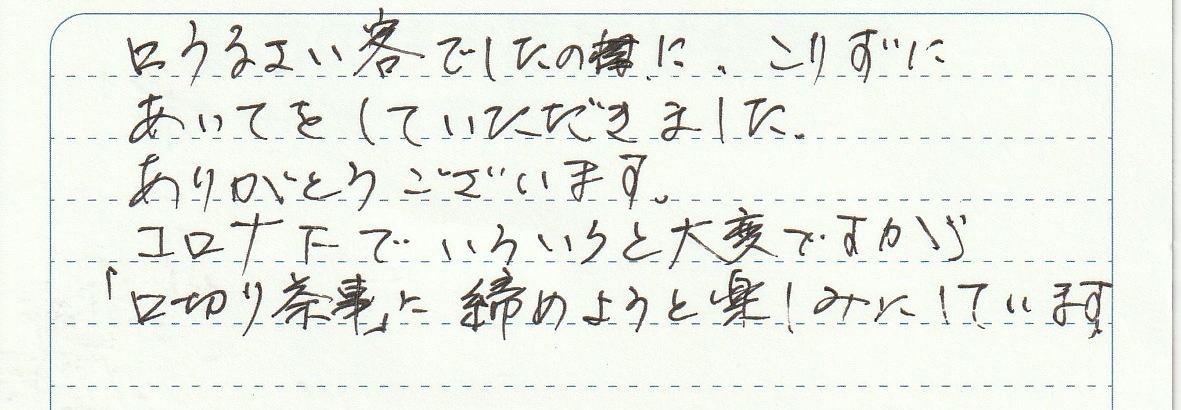 口うるさい客でしたのに、こりずに
あいてをしていただきました。
ありがとうございます。
コロナ下でいろいろと大変ですが
「口切り茶事」に締めようと楽しみにしています